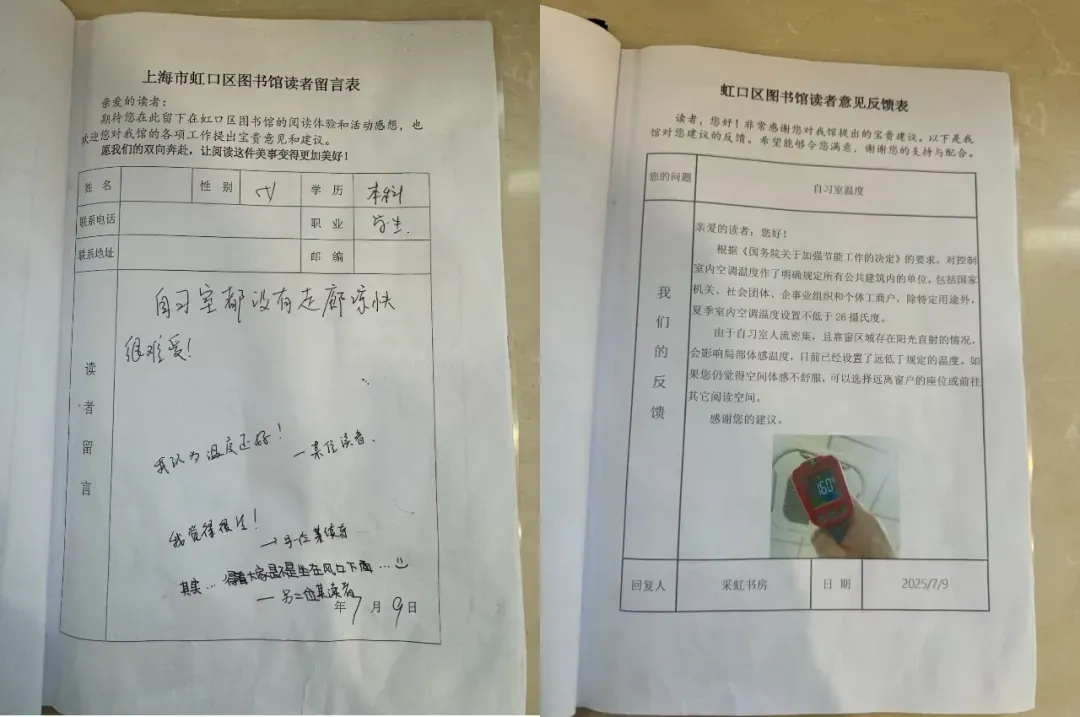 上海市虹口区图书馆读者留言表
亲爱的读者：
期待您在此留下在虹口区图书馆的阅读体验和活动感想，也
欢迎您对我馆的各项工作提出宝贵意见和建议。
愿我们的双向奔赴，让阅读这件美事变得更加美好！
姓 名 性 别 女 学 历 本科
联系电话 职 业 学生.
联系地址 邮 编
读者留言
自习室都没有走廊凉快
很难受！
我认为温度还好！
—某位读者.
我觉得很
→另一位某读者
其实… 得看大家是不是坐在风口下面…
—另二位某读者
年7月9日
虹口区图书馆读者意见反馈表
读者：您好！非常感谢您对我馆提出的宝贵建议。以下是我
馆对您建议的反馈。希望能够令您满意，谢谢您的支持与配合。
您的问题 自习室温度
我们的反馈
亲爱的读者：您好！
根据《国务院关于加强节能工作的决定》的要求，对控制
室内空调温度作了明确规定所有公共建筑内的单位，包括国家
机关、社会团体、企事业组织和个体工商户，除特定用途外，
夏季室内空调温度设置不低于 26 摄氏度。
由于自习室人流密集，且靠窗区域存在阳光直射的情况，
会影响局部体感温度，目前已经设置了远低于规定的温度。如
果您仍觉得空间体感不舒服，可以选择远离窗户的座位或前往
其它阅读空间。
感谢您的建议。
160
回复人 采虹书房 日 期 2025/7/9